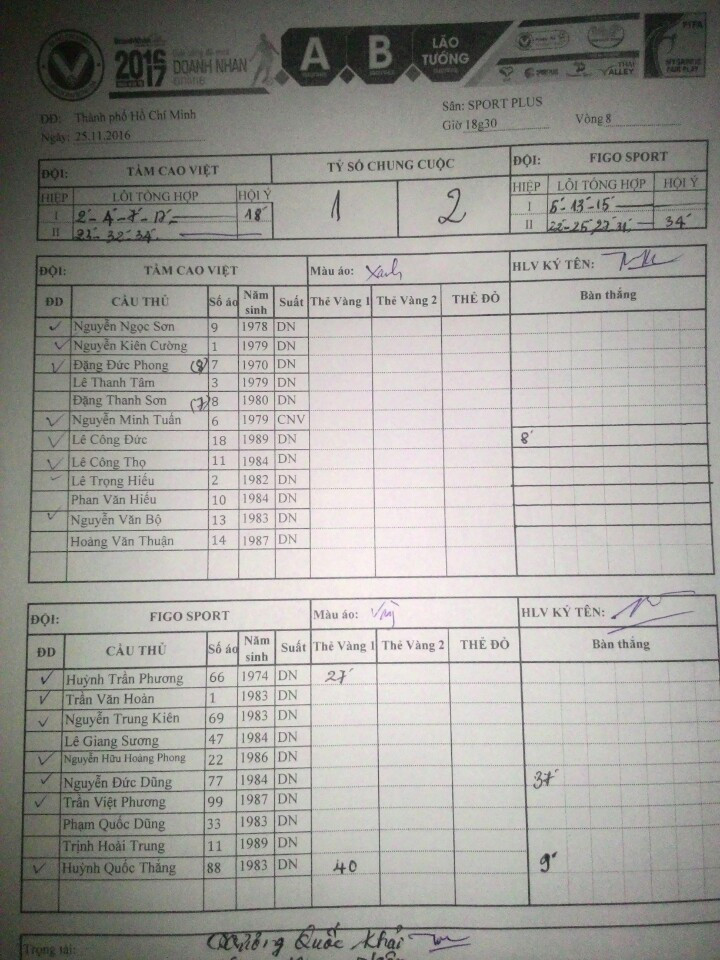 2016
17
DOANH NHAN
A
B
LÃO TƯỚNG
FIFA
MY GAME IS FAIR PLAY
THAI VALLEY
ĐĐ: Thành phố Hồ Chí Minh
Sân: SPORT PLUS
Ngày: 25.11.2016
Giờ 18g30 Vòng 8
ĐỘI: TẦM CAO VIỆT TỶ SỐ CHUNG CUỘC ĐỘI: FIGO SPORT
HIỆP LỖI TỔNG HỢP HỘI Ý 1 2 HIỆP LỖI TỔNG HỢP HỘI Ý
I 2'-4'-7'-12' 18' I 5'-13-15'
II 23'-32'34' II 22'-25,27 31' 34'
ĐỘI: TẦM CAO VIỆT Màu áo: Xanh HLV KÝ TÊN:
ĐD CẦU THỦ Số áo Năm sinh Suất Thẻ Vàng 1 Thẻ Vàng 2 THẺ ĐỎ Bàn thắng
✓ Nguyễn Ngọc Sơn 9 1978 DN
✓ Nguyễn Kiên Cường 1 1979 DN
✓ Đặng Đức Phong (8) 7 1970 DN
Lê Thanh Tâm 3 1979 DN
Đặng Thanh Sơn (7) 8 1980 DN
✓ Nguyễn Minh Tuấn 6 1979 CNV
✓ Lê Công Đức 18 1989 DN 8'
✓ Lê Công Thọ 11 1984 DN
✓ Lê Trọng Hiếu 2 1982 DN
Phan Văn Hiếu 10 1984 DN
✓ Nguyễn Văn Bộ 13 1983 DN
Hoàng Văn Thuận 14 1987 DN
ĐỘI: FIGO SPORT Màu áo: HLV KÝ TÊN:
ĐD CẦU THỦ Số áo Năm sinh Suất Thẻ Vàng 1 Thẻ Vàng 2 THẺ ĐỎ Bàn thắng
✓ Huỳnh Trần Phương 66 1974 DN 27'
✓ Trần Văn Hoàn 1 1983 DN
✓ Nguyễn Trung Kiên 69 1983 DN
Lê Giang Sương 47 1984 DN
✓ Nguyễn Hữu Hoàng Phong 22 1986 DN
✓ Nguyễn Đức Dũng 77 1984 DN 37'
✓ Trần Việt Phương 99 1987 DN
Phạm Quốc Dũng 33 1983 DN
Trịnh Hoài Trung 11 1989 DN
✓ Huỳnh Quốc Thắng 88 1983 DN 40 9'
Trọng tài: Quốc Khải